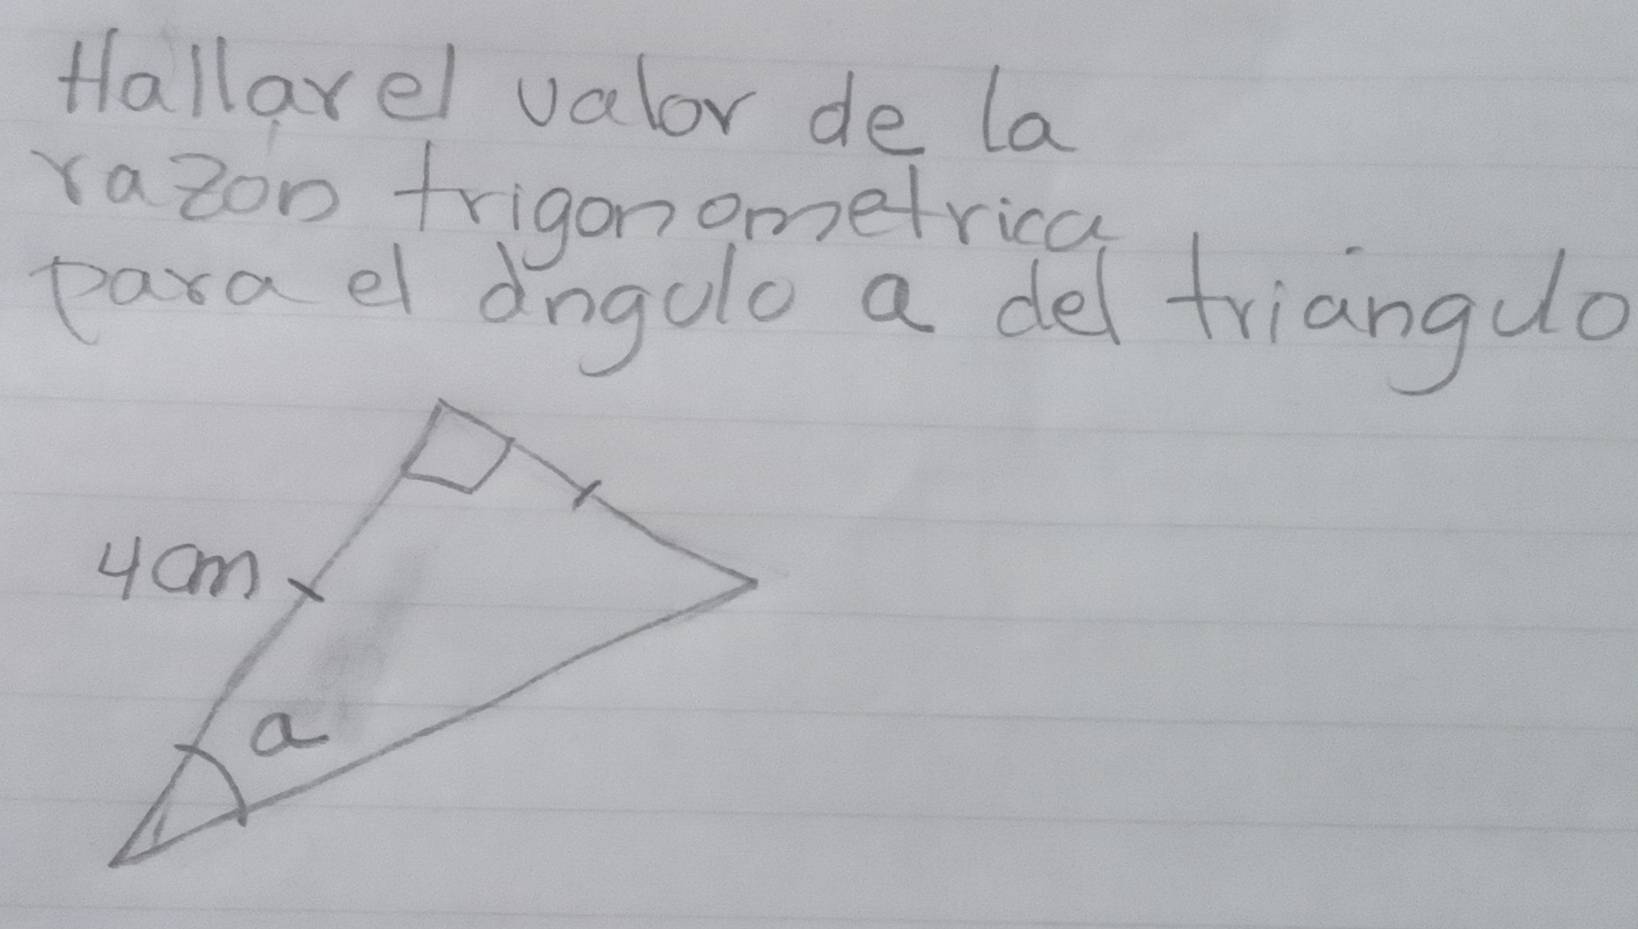 Hallar el valor de la
razón trigonometrica
para el ángulo a del triángulo
4cm
a